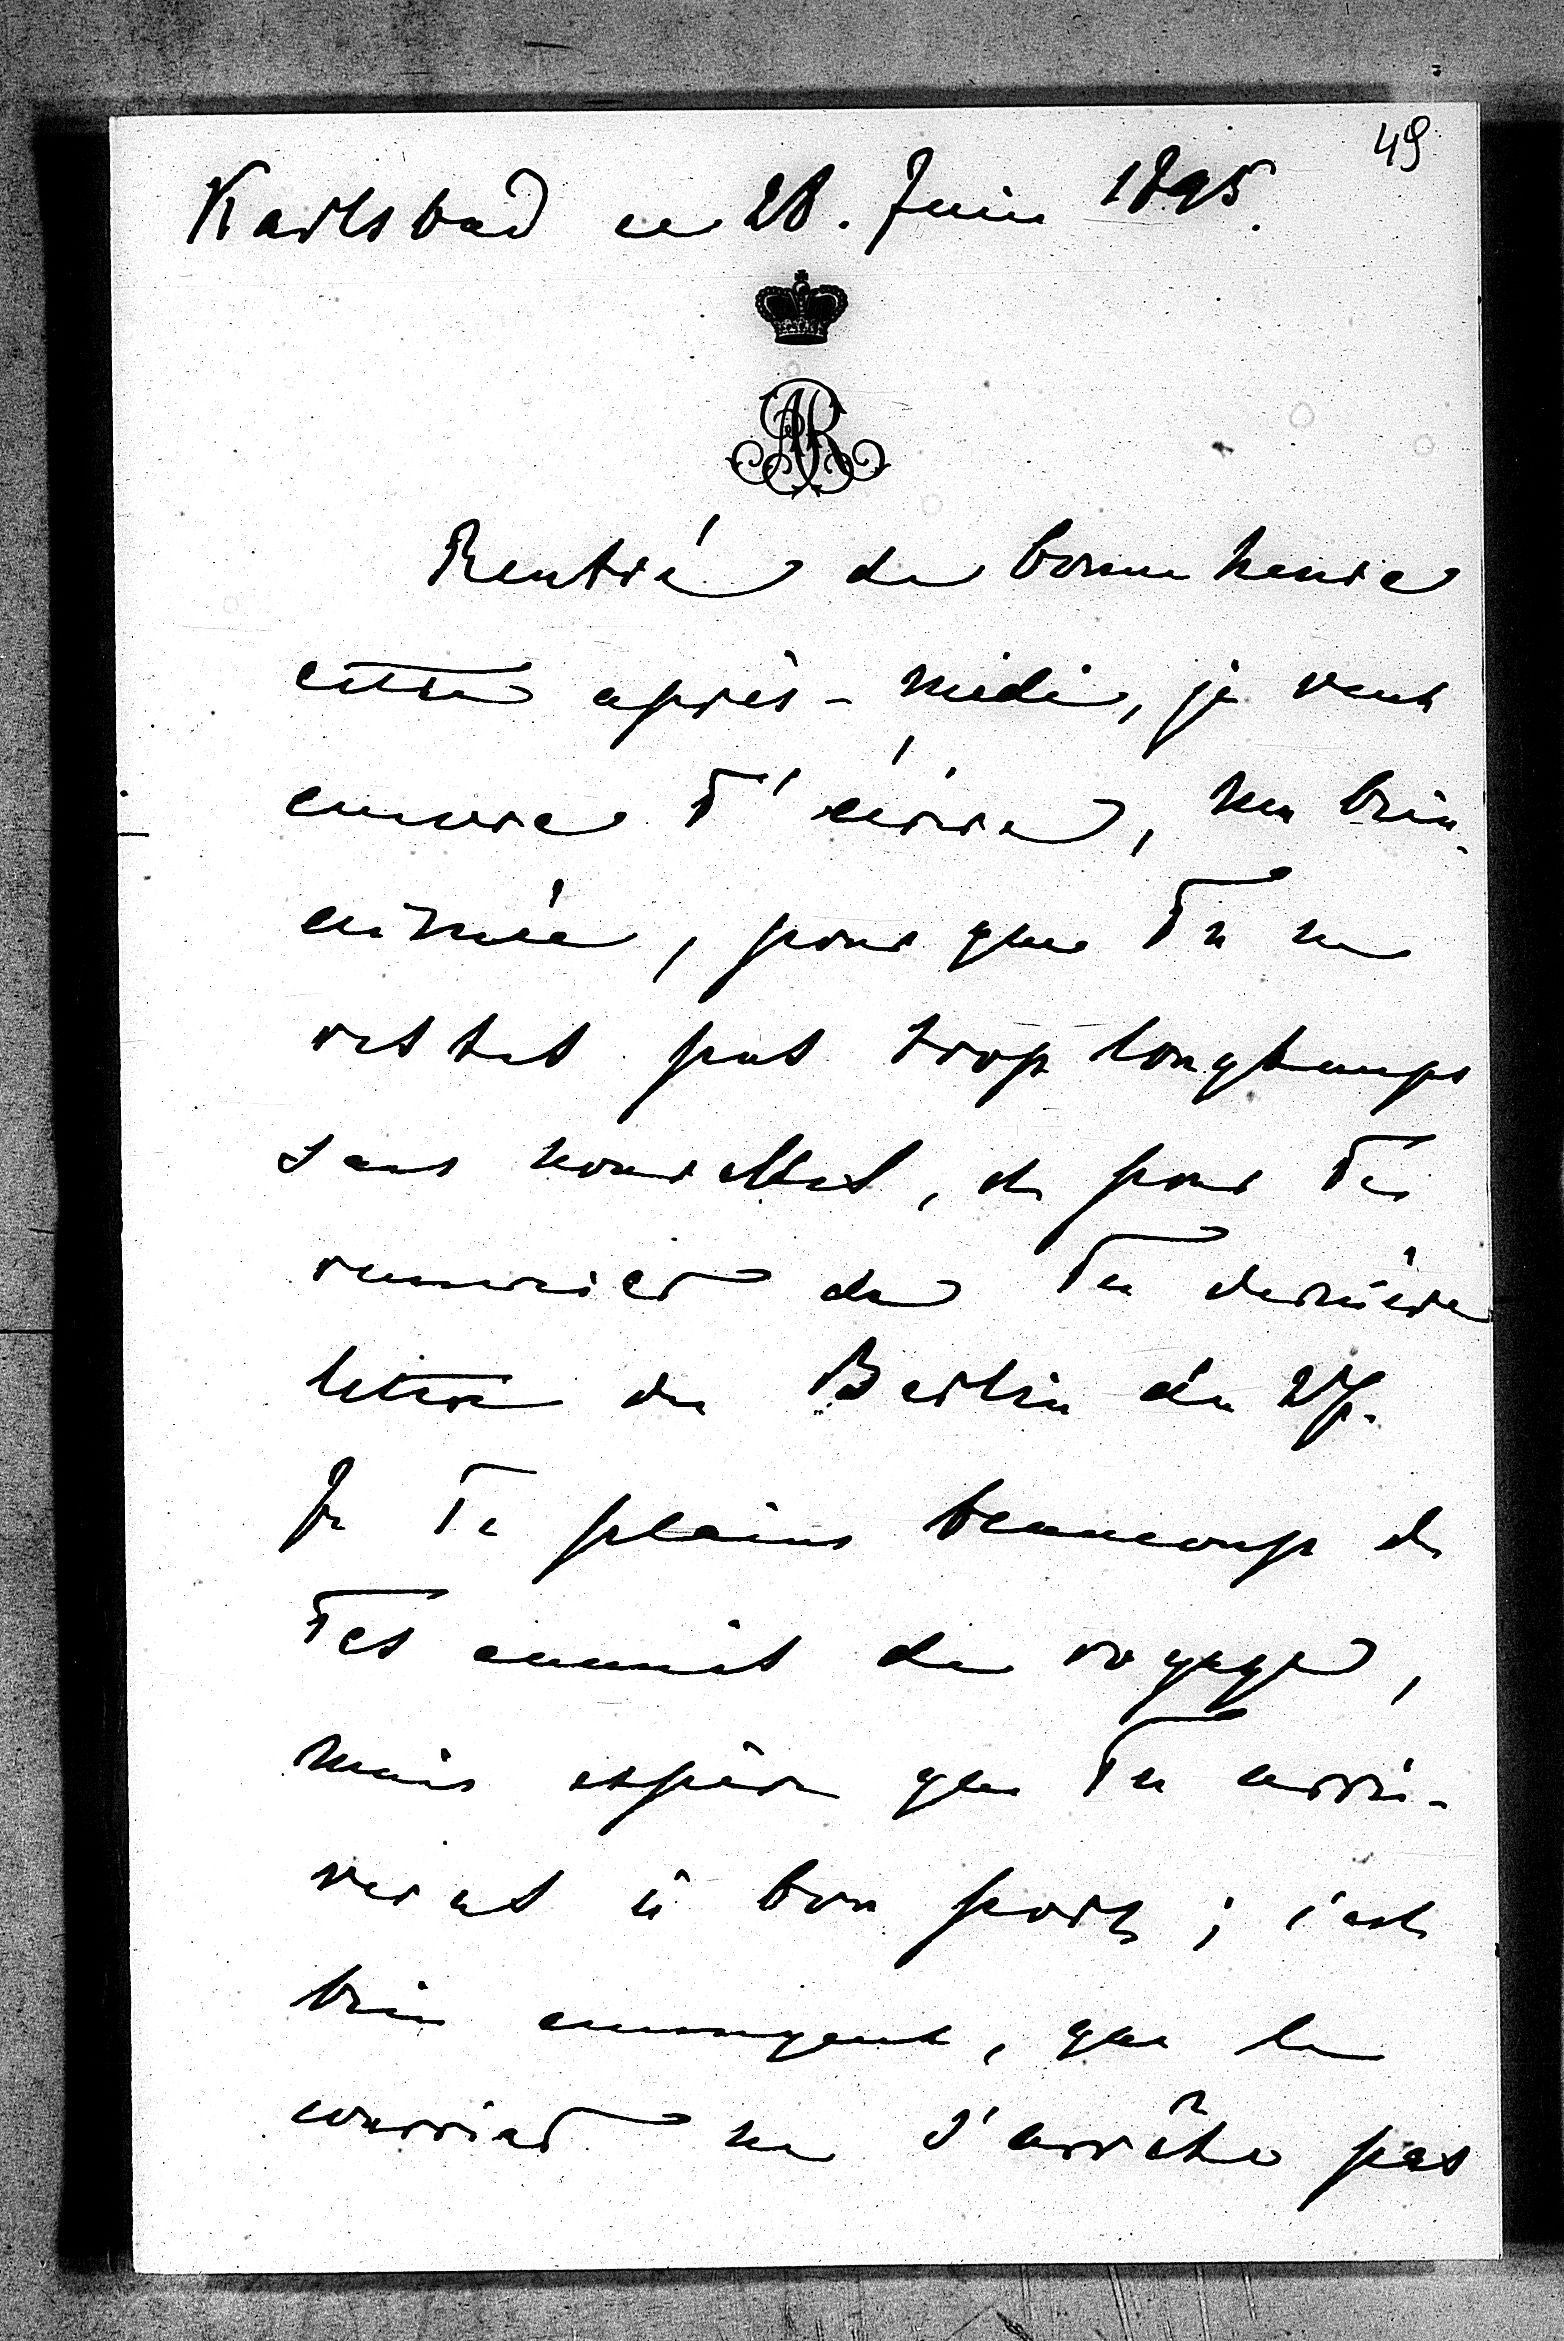 49
Karlsbad ce 28. Juin 1895.
AR
Rentré de bonne heure
cette après-midi, je veux
encore T'écrire, ma bien-
aimée, pour que Tu ne
restes pas trop longtemps
sans nouvelles, et pour Te
remercier de Ta dernière
lettre de Berlin du 27.
Je Te plains beaucoup de
Tes ennuis de voyage,
mais espère que Tu arri-
veras à bon port; c'est
bien ennuyeux, que le
courrier ne s'arrête pas